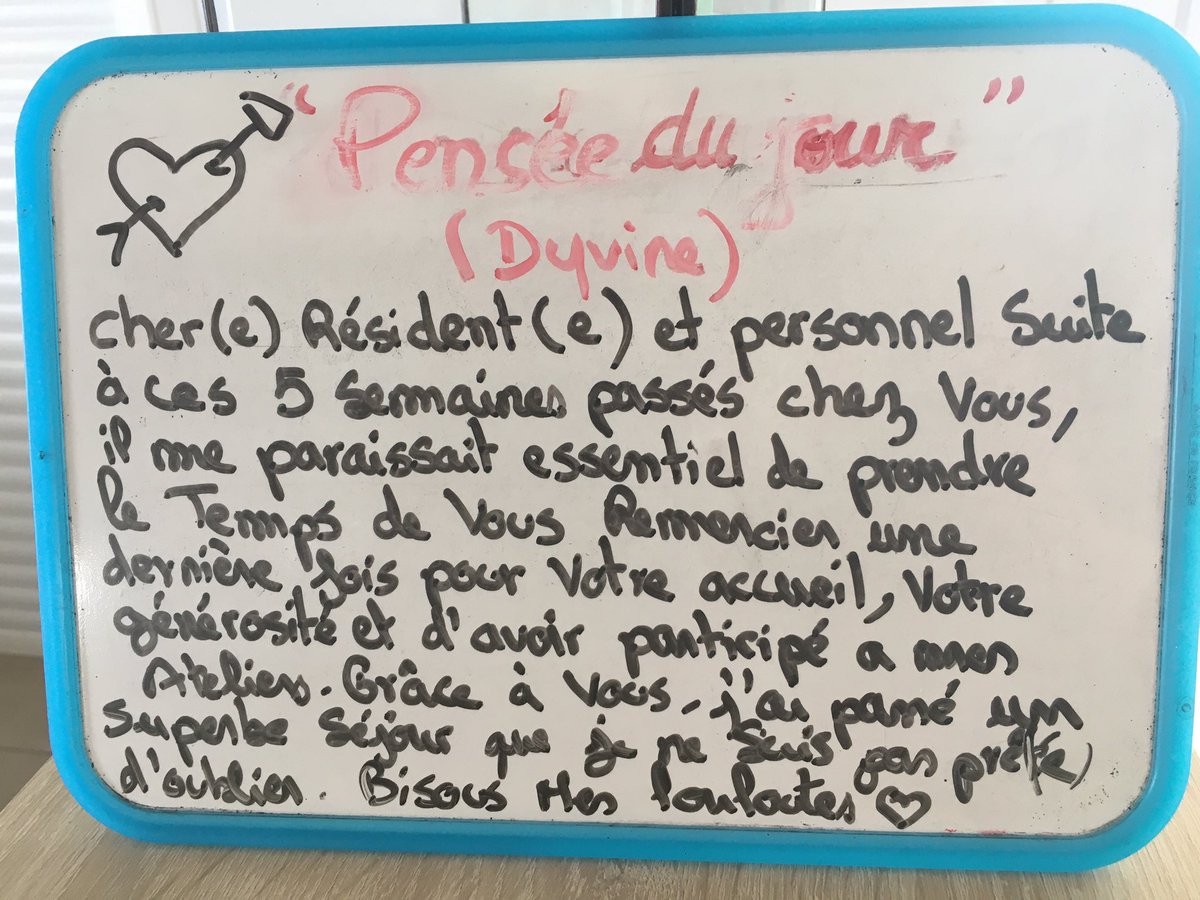 "Pensée du jour"
(Dyvine)
cher(e) Résident(e) et personnel Suite
à ces 5 Semaines passés chez Vous,
il me paraissait essentiel de prendre
le Temps de Vous Remercier une
dernière fois pour Votre accueil, Votre
générosité et d'avoir participé a mes
Ateliers. Grâce à Vous. j'ai passé un
superbe séjour que je ne suis pas prête
d'oublier. Bisous Mes Louloutes